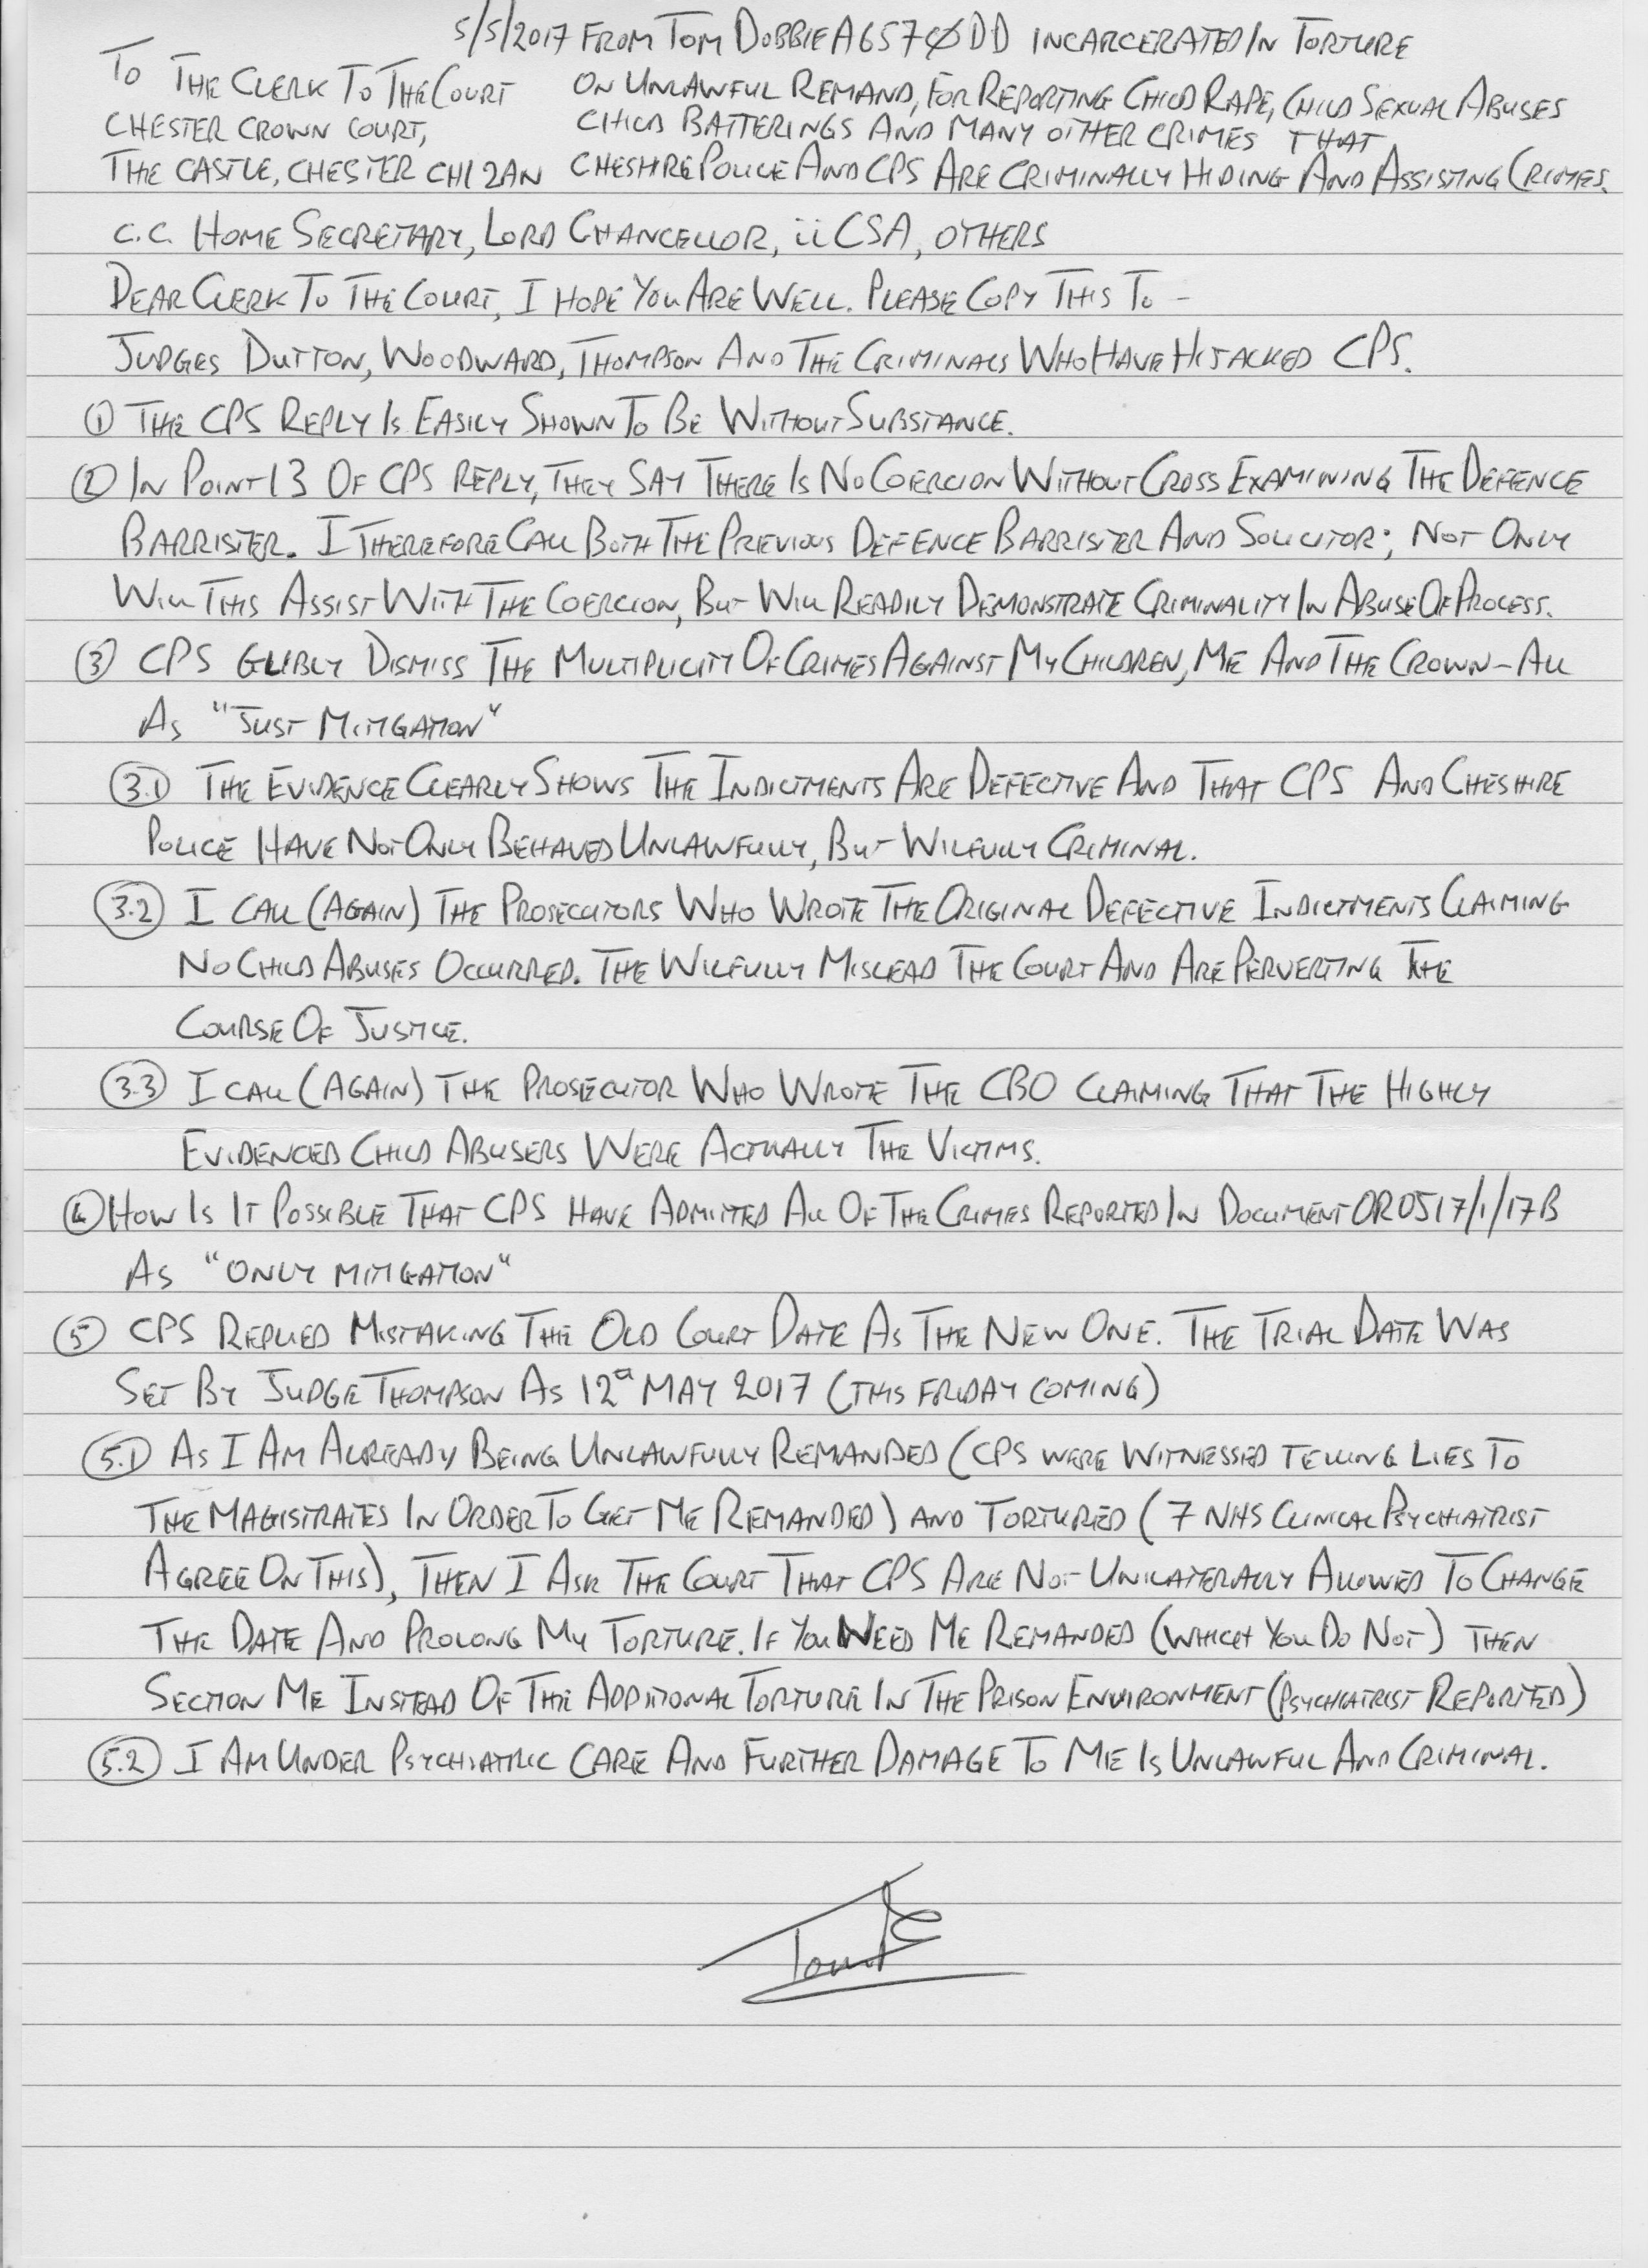 5/5/2017 FROM TOM DOBBIE A6570DD INCARCERATED IN TORTURE
TO THE CLERK TO THE COURT
CHESTER CROWN COURT,
THE CASTLE, CHESTER CH1 2AN
ON UNLAWFUL REMAND, FOR REPORTING CHILD RAPE, CHILD SEXUAL ABUSES
CHILD BATTERINGS AND MANY OTHER CRIMES THAT
CHESHIRE POLICE AND CPS ARE CRIMINALLY HIDING AND ASSISTING CRIMES.
C.C. HOME SECRETARY, LORD CHANCELLOR, iiCSA, OTHERS
DEAR CLERK TO THE COURT, I HOPE YOU ARE WELL. PLEASE COPY THIS TO -
JUDGES DUTTON, WOODWARD, THOMPSON AND THE CRIMINALS WHO HAVE HIJACKED CPS.
① THE CPS REPLY IS EASILY SHOWN TO BE WITHOUT SUBSTANCE.
② IN POINT 13 OF CPS REPLY, THEY SAY THERE IS NO COERCION WITHOUT CROSS EXAMINING THE DEFENCE
BARRISTER. I THEREFORE CALL BOTH THE PREVIOUS DEFENCE BARRISTER AND SOLICITOR; NOT ONLY
WILL THIS ASSIST WITH THE COERCION, BUT WILL READILY DEMONSTRATE CRIMINALITY IN ABUSE OF PROCESS.
③ CPS GLIBLY DISMISS THE MULTIPLICITY OF CRIMES AGAINST MY CHILDREN, ME AND THE CROWN - ALL
AS "JUST MITIGATION"
3.1 THE EVIDENCE CLEARLY SHOWS THE INDICTMENTS ARE DEFECTIVE AND THAT CPS AND CHESHIRE
POLICE HAVE NOT ONLY BEHAVED UNLAWFULLY, BUT WILFULLY CRIMINAL.
3.2 I CALL (AGAIN) THE PROSECUTORS WHO WROTE THE ORIGINAL DEFECTIVE INDICTMENTS CLAIMING
NO CHILD ABUSES OCCURRED. THE WILFULLY MISLEAD THE COURT AND ARE PERVERTING THE
COURSE OF JUSTICE.
3.3 I CALL (AGAIN) THE PROSECUTOR WHO WROTE THE CBO CLAIMING THAT THE HIGHLY
EVIDENCED CHILD ABUSERS WERE ACTUALLY THE VICTIMS.
④ HOW IS IT POSSIBLE THAT CPS HAVE ADMITTED ALL OF THE CRIMES REPORTED IN DOCUMENT OR0517/1/17B
AS "ONLY MITIGATION"
⑤ CPS REPLIED MISTAKING THE OLD COURT DATE AS THE NEW ONE. THE TRIAL DATE WAS
SET BY JUDGE THOMPSON AS 12 MAY 2017 (THIS FRIDAY COMING)
5.1 AS I AM ALREADY BEING UNLAWFULLY REMANDED (CPS WERE WITNESSED TELLING LIES TO
THE MAGISTRATES IN ORDER TO GET ME REMANDED) AND TORTURED (7 NHS CLINICAL PSYCHIATRIST
AGREE ON THIS), THEN I ASK THE COURT THAT CPS ARE NOT UNILATERALLY ALLOWED TO CHANGE
THE DATE AND PROLONG MY TORTURE. IF YOU NEED ME REMANDED (WHICH YOU DO NOT) THEN
SECTION ME INSTEAD OF THE ADDITIONAL TORTURE IN THE PRISON ENVIRONMENT (PSYCHIATRIST REPORTED)
5.2 I AM UNDER PSYCHIATRIC CARE AND FURTHER DAMAGE TO ME IS UNLAWFUL AND CRIMINAL.